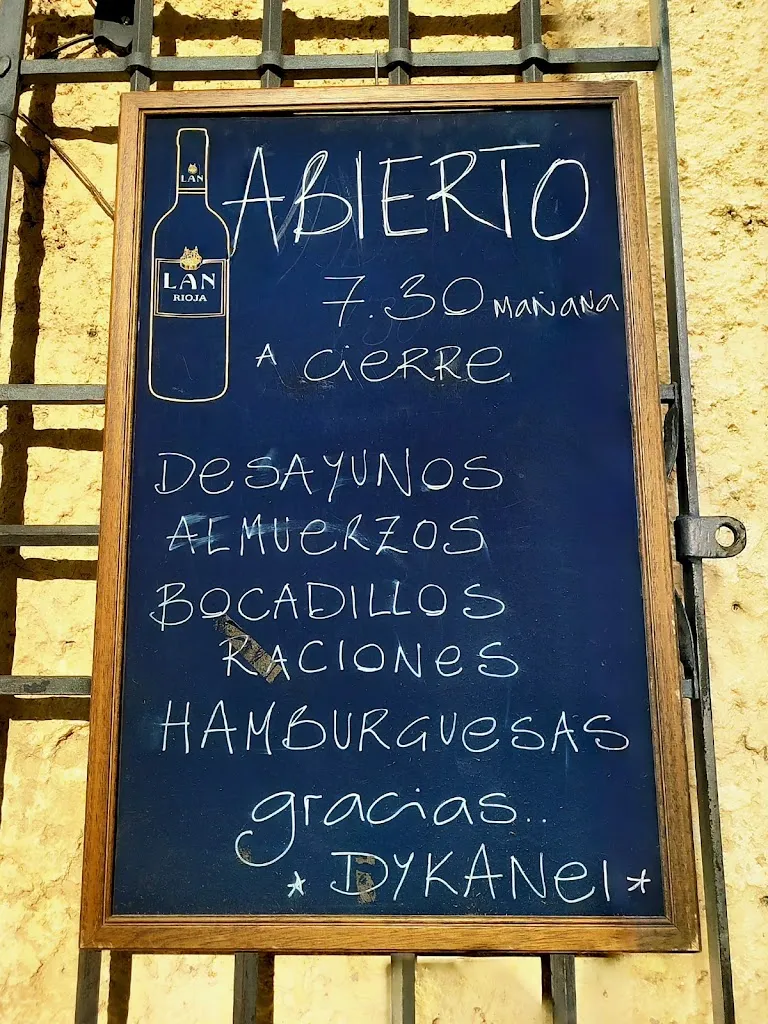 LAN
LAN
RIOJA
ABIERTO
7.30 MAÑANA
A CIERRE
DESAYUNOS
ALMUERZOS
BOCADILLOS
RACIONES
HAMBURGUESAS
gracias..
* DYKANEI *